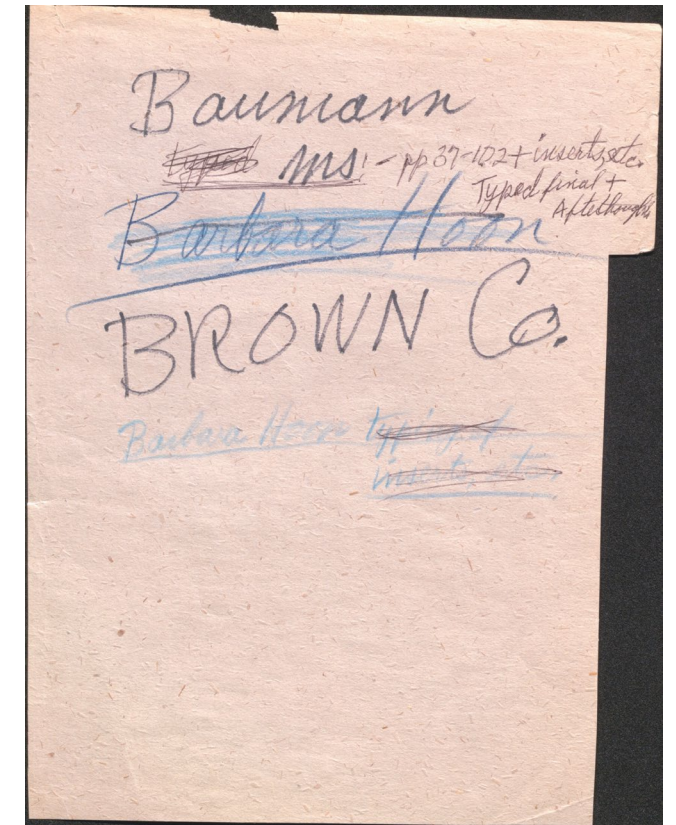 Baumann
typed ms. - pp 37-102 + inserts, etc.
Typed final +
Afterthoughts
Barbara Hoon
BROWN Co.
Barbara Hoon typing of
inserts, etc.